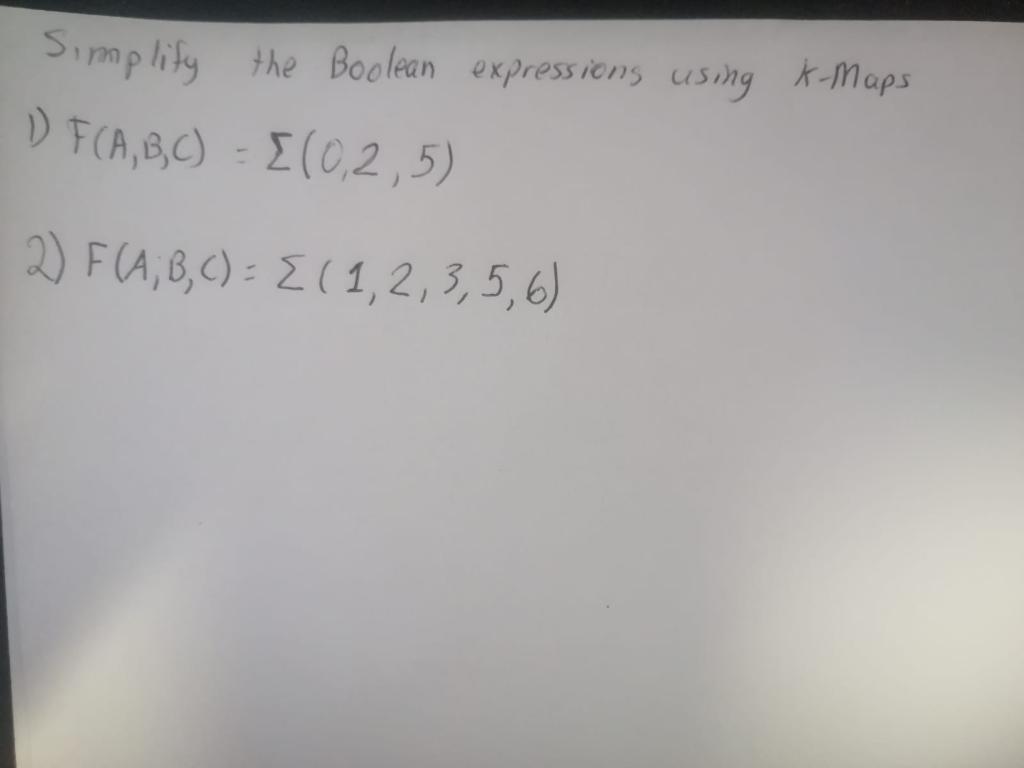 Simplify the Boolean expressions using K-Maps
1) F(A,B,C) = Σ(0,2,5)
2) F(A,B,C) = Σ(1,2,3,5,6)